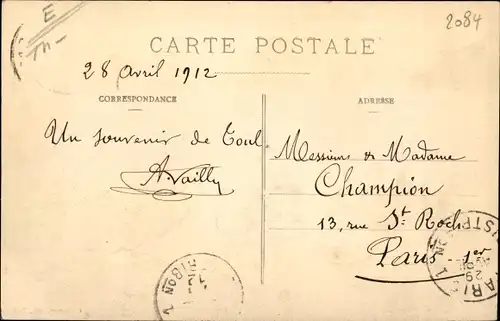 E
2084
CARTE POSTALE
28 Avril 1912
CORRESPONDANCE
ADRESSE
Un souvenir de Toul.
A. Vailly
Messieurs & Madame
Champion
13, rue St. Roch
Paris 1er